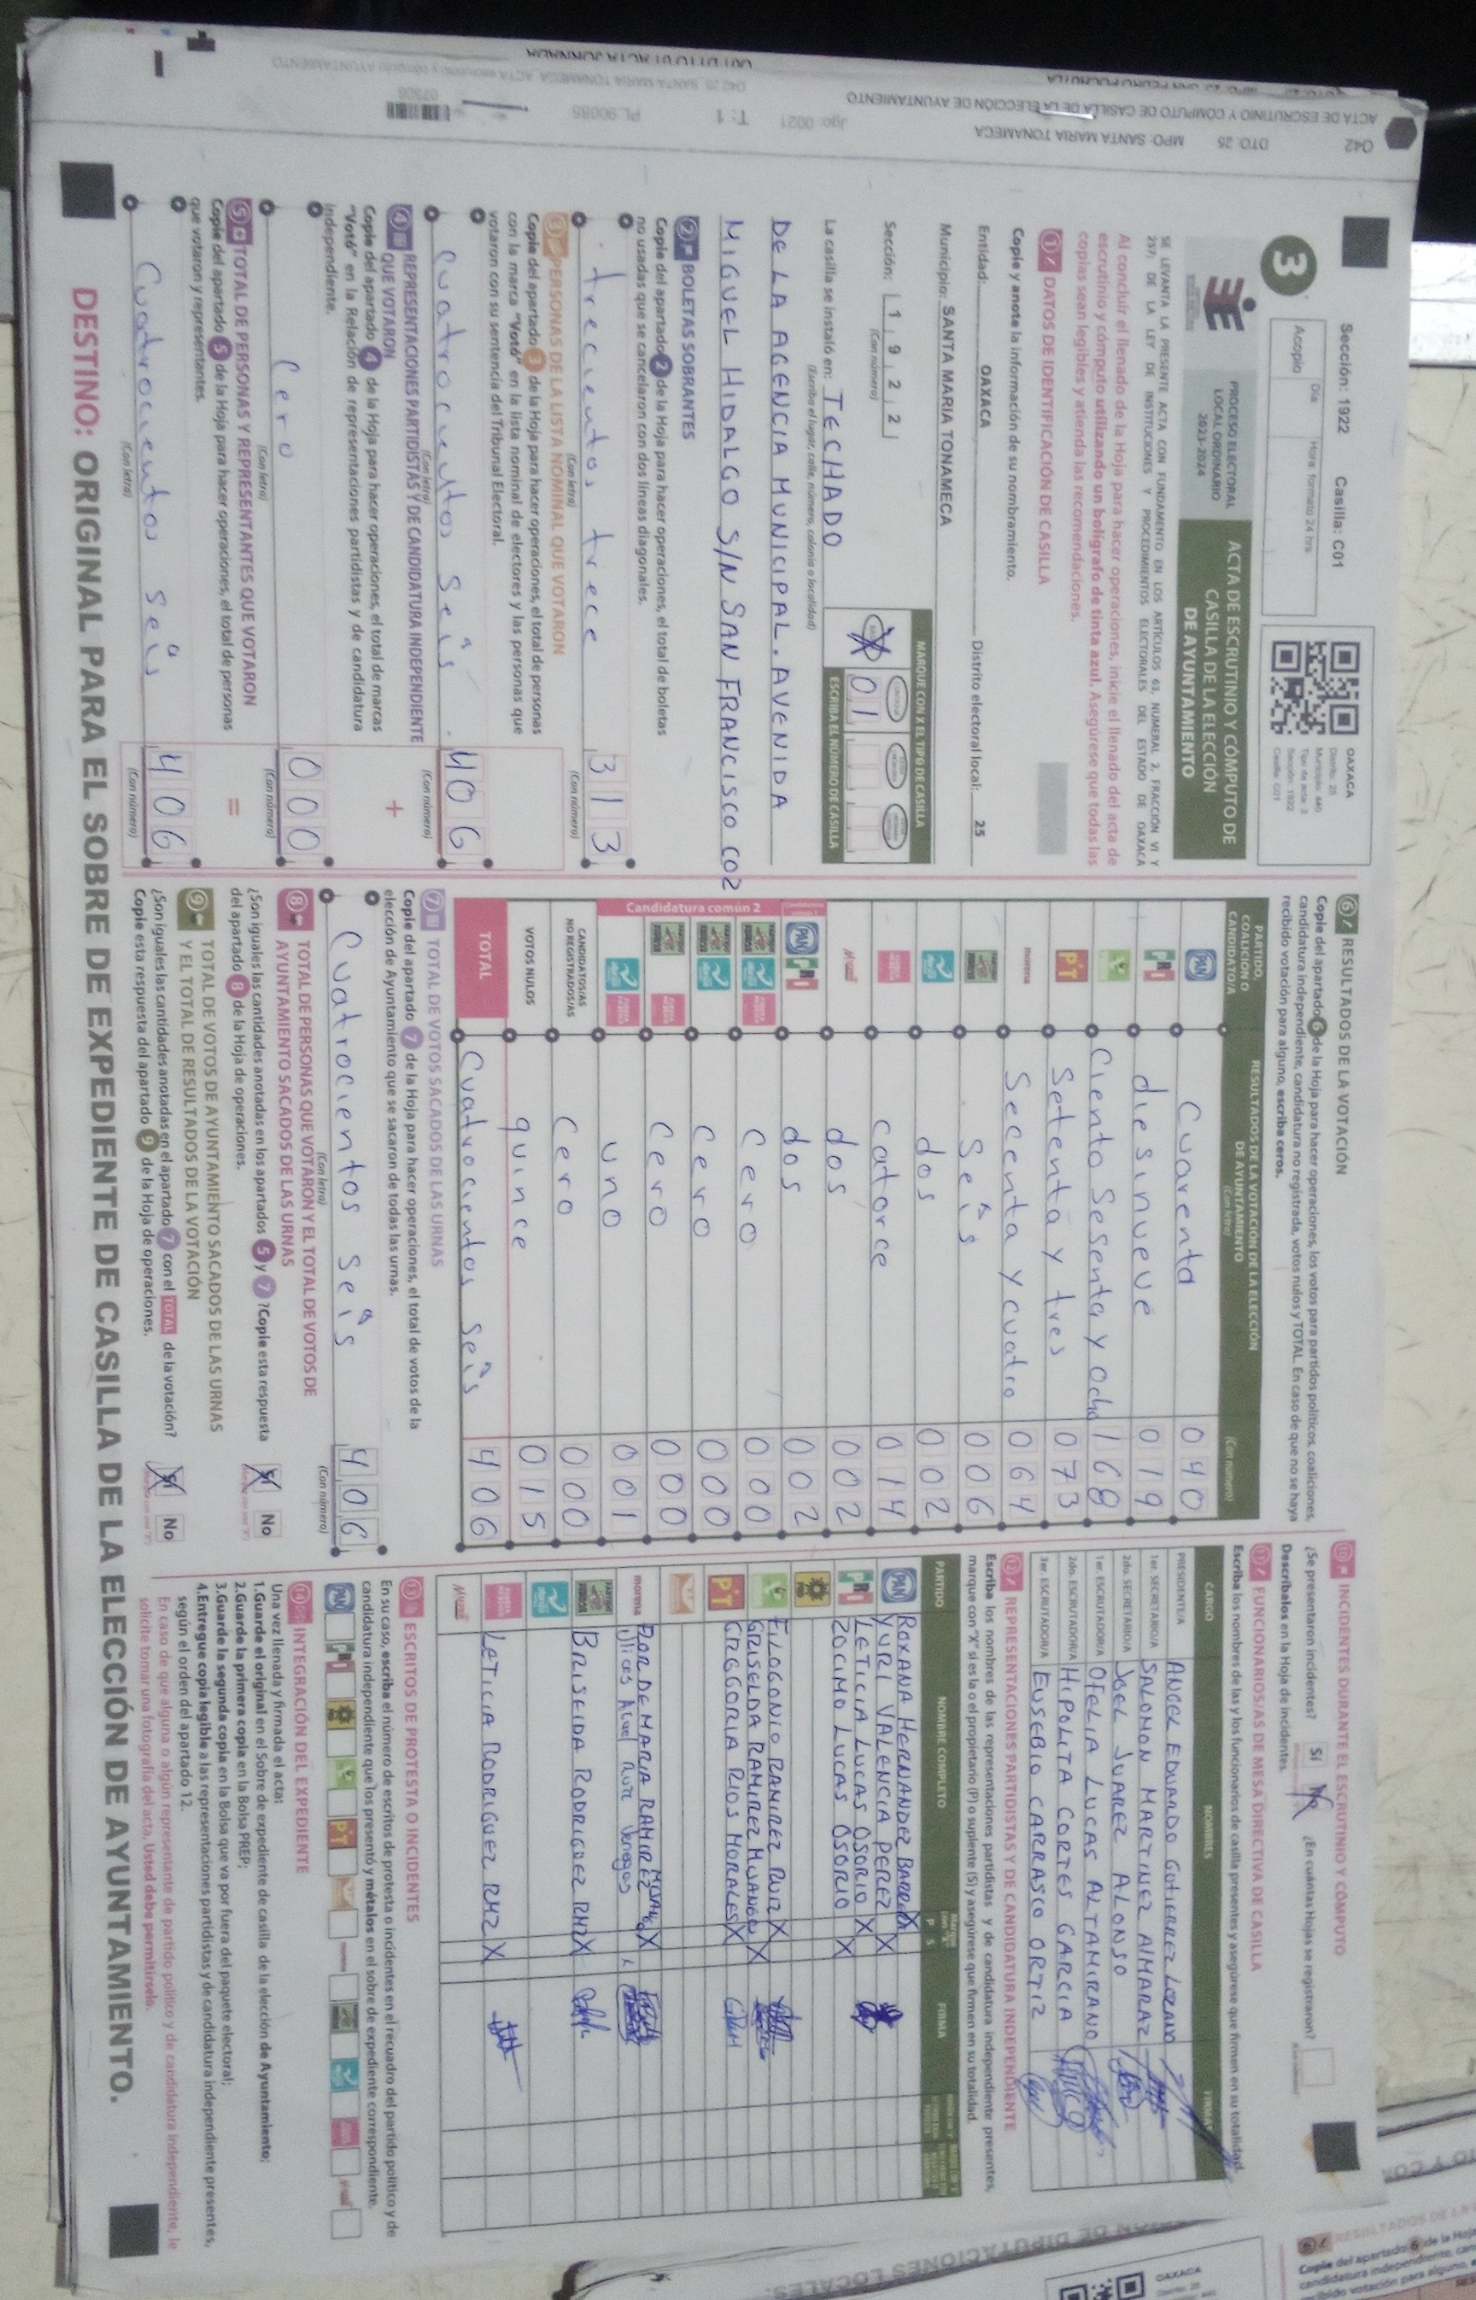 ACTA DE ESCRUTINIO Y CÓMPUTO DE CASILLA DE LA ELECCIÓN DE AYUNTAMIENTO
042 DTO. 25 MPO. SANTA MARIA TONAMECA
Sección: 1922 Casilla: C01
3
Acopio
Día Hora: formato 24 hrs
OAXACA
PROCESO ELECTORAL
LOCAL ORDINARIO
2023-2024
ACTA DE ESCRUTINIO Y CÓMPUTO DE
CASILLA DE LA ELECCIÓN
DE AYUNTAMIENTO
SE LEVANTA LA PRESENTE ACTA CON FUNDAMENTO EN LOS ARTÍCULOS 63, NUMERAL 2, FRACCIÓN VI Y
237; DE LA LEY DE INSTITUCIONES Y PROCEDIMIENTOS ELECTORALES DEL ESTADO DE OAXACA
Al concluir el llenado de la Hoja para hacer operaciones, inicie el llenado del acta de
escrutinio y cómputo utilizando un bolígrafo de tinta azul. Asegúrese que todas las
copias sean legibles y atienda las recomendaciones.
1 DATOS DE IDENTIFICACIÓN DE CASILLA
Copie y anote la información de su nombramiento.
Entidad: OAXACA Distrito electoral local: 25
Municipio: SANTA MARIA TONAMECA
Sección: 1 9 2 2
(Con número)
MARQUE CON X EL TIPO DE CASILLA
ESCRIBA EL NÚMERO DE CASILLA
01
La casilla se instaló en: TECHADO
(Escriba el lugar, calle, número, colonia o localidad)
DE LA AGENCIA MUNICIPAL. AVENIDA
MIGUEL HIDALGO S/N SAN FRANCISCO COZ
2 BOLETAS SOBRANTES
Copie del apartado 2 de la Hoja para hacer operaciones, el total de boletas
no usadas que se cancelaron con dos líneas diagonales.
trecientos trece 313
(Con letra) (Con número)
3 PERSONAS DE LA LISTA NOMINAL QUE VOTARON
Copie del apartado 3 de la Hoja para hacer operaciones, el total de personas
con la marca "Votó" en la lista nominal de electores y las personas que
votaron con su sentencia del Tribunal Electoral.
Cuatrocientos seis 406
(Con letra) (Con número)
4 REPRESENTACIONES PARTIDISTAS Y DE CANDIDATURA INDEPENDIENTE
QUE VOTARON
+
Copie del apartado 4 de la Hoja para hacer operaciones, el total de marcas
"Votó" en la Relación de representaciones partidistas y de candidatura
independiente.
Cero 000
(Con letra) (Con número)
5 TOTAL DE PERSONAS Y REPRESENTANTES QUE VOTARON
=
Copie del apartado 5 de la Hoja para hacer operaciones, el total de personas
que votaron y representantes.
Cuatrocientos seis 406
(Con letra) (Con número)
6 RESULTADOS DE LA VOTACIÓN
Copie del apartado 6 de la Hoja para hacer operaciones, los votos para partidos políticos, coaliciones,
candidatura independiente, candidatura no registrada, votos nulos y TOTAL. En caso de que no se haya
recibido votación para alguno, escriba ceros.
PARTIDO, COALICIÓN O CANDIDATO/A
RESULTADOS DE LA VOTACIÓN DE LA ELECCIÓN DE AYUNTAMIENTO
(Con letra) (Con número)
PAN Cuarenta 040
PRI diesinueve 019
Ciento Sesenta y ocho 168
PT Setenta y tres 073
morena Secenta y cuatro 064
Seis 006
dos 002
catorce 014
dos 002
PAN PRI dos 002
Candidatura común 2
Cero 000
Cero 000
Cero 000
uno 001
CANDIDATOS/AS NO REGISTRADOS/AS Cero 000
VOTOS NULOS quince 015
TOTAL Cuatrocientos seis 406
7 TOTAL DE VOTOS SACADOS DE LAS URNAS
Copie del apartado 7 de la Hoja para hacer operaciones, el total de votos de la
elección de Ayuntamiento que se sacaron de todas las urnas.
Cuatrocientos seis 406
(Con letra) (Con número)
8 TOTAL DE PERSONAS QUE VOTARON Y EL TOTAL DE VOTOS DE
AYUNTAMIENTO SACADOS DE LAS URNAS
¿Son iguales las cantidades anotadas en los apartados 5 y 7? Copie esta respuesta
del apartado 8 de la Hoja de operaciones.
Sí No
9 TOTAL DE VOTOS DE AYUNTAMIENTO SACADOS DE LAS URNAS
Y EL TOTAL DE RESULTADOS DE LA VOTACIÓN
¿Son iguales las cantidades anotadas en el apartado 7 con el TOTAL de la votación?
Copie esta respuesta del apartado 9 de la Hoja de operaciones.
Sí No
10 INCIDENTES DURANTE EL ESCRUTINIO Y CÓMPUTO
¿Se presentaron incidentes? Sí No ¿En cuántas Hojas se registraron?
Descríbalos en la Hoja de incidentes.
11 FUNCIONARIOS/AS DE MESA DIRECTIVA DE CASILLA
Escriba los nombres de las y los funcionarios de casilla presentes y asegúrese que firmen en su totalidad.
CARGO NOMBRES FIRMAS
PRESIDENTE/A ANGEL EDUARDO GUTIERREZ LOZANO
1er. SECRETARIO/A SALOMON MARTINEZ ALMARAZ
2do. SECRETARIO/A JOEL JUAREZ ALONSO
1er. ESCRUTADOR/A OFELIA LUCAS ALTAMIRANO
2do. ESCRUTADOR/A HIPOLITA CORTES GARCIA
3er. ESCRUTADOR/A EUSEBIO CARRASCO ORTIZ
12 REPRESENTACIONES PARTIDISTAS Y DE CANDIDATURA INDEPENDIENTE
Escriba los nombres de las representaciones partidistas y de candidatura independiente presentes,
marque con "X" si es la o el propietario (P) o suplente (S) y asegúrese que firmen en su totalidad.
PARTIDO NOMBRE COMPLETO P S FIRMA
PAN ROXANA HERNANDEZ X
YURI VALENCIA PEREZ X
PRI LETICIA LUCAS OSORIO X
ZOCIMO LUCAS OSORIO X
FILOGONIO RAMIREZ RUIZ X
GRISELDA RAMIREZ X
PT GREGORIA RIOS MORALES X
morena FLOR DE MARIA RAMIREZ X
BRISEIDA RODRIGUEZ RMZ X
LETICIA RODRIGUEZ RMZ X
13 ESCRITOS DE PROTESTA O INCIDENTES
En su caso, escriba el número de escritos de protesta o incidentes en el recuadro del partido político y de
candidatura independiente que los presentó y métalos en el sobre de expediente correspondiente.
PAN PRI PT
14 INTEGRACIÓN DEL EXPEDIENTE
Una vez llenada y firmada el acta:
1.Guarde el original en el Sobre de expediente de casilla de la elección de Ayuntamiento;
2.Guarde la primera copia en la Bolsa PREP;
3.Guarde la segunda copia en la Bolsa que va por fuera del paquete electoral;
4.Entregue copia legible a las representaciones partidistas y de candidatura independiente presentes,
según el orden del apartado 12.
En caso de que alguna o algún representante de partido político y de candidatura independiente, le
solicite tomar una fotografía del acta, Usted debe permitírselo.
DESTINO: ORIGINAL PARA EL SOBRE DE EXPEDIENTE DE CASILLA DE LA ELECCIÓN DE AYUNTAMIENTO.